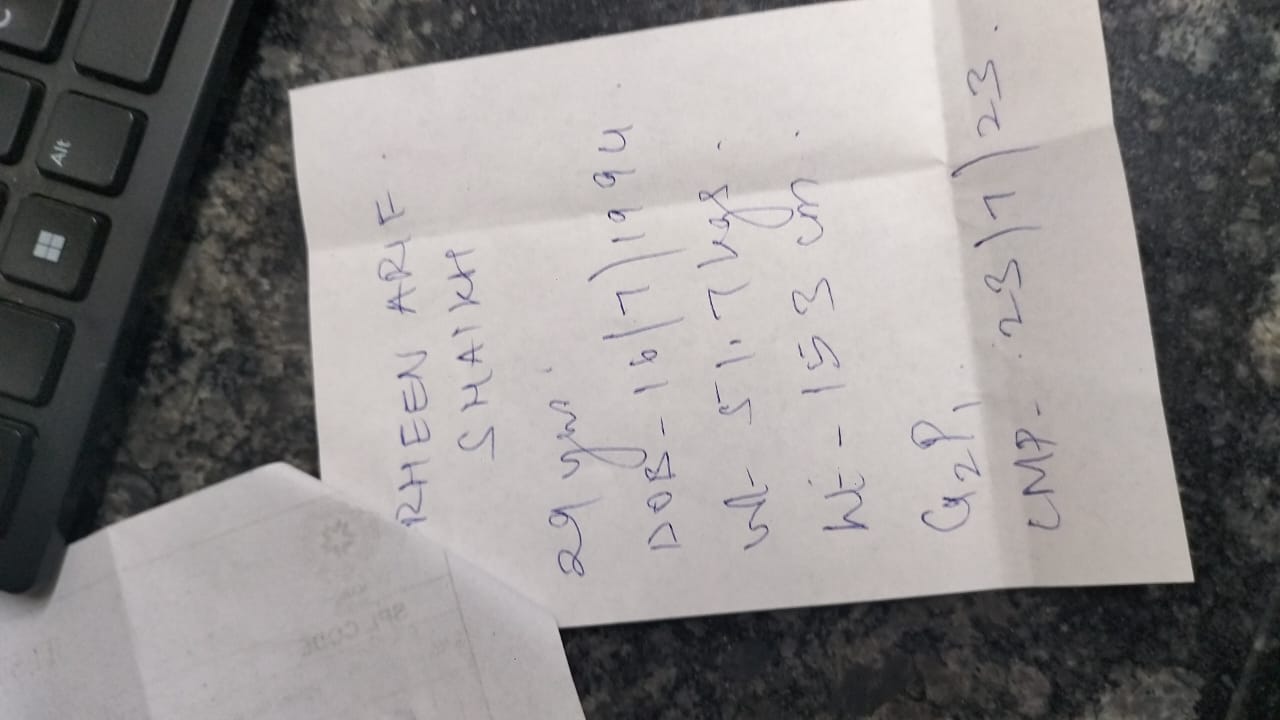 RHEEN ARIF.
SHAIKH
29 yrs.
DOB - 16/7/1994
wt - 51.7 kgs.
ht - 153 cm.
G2P1
LMP - 23/7/23.
Alt
SPL CODE